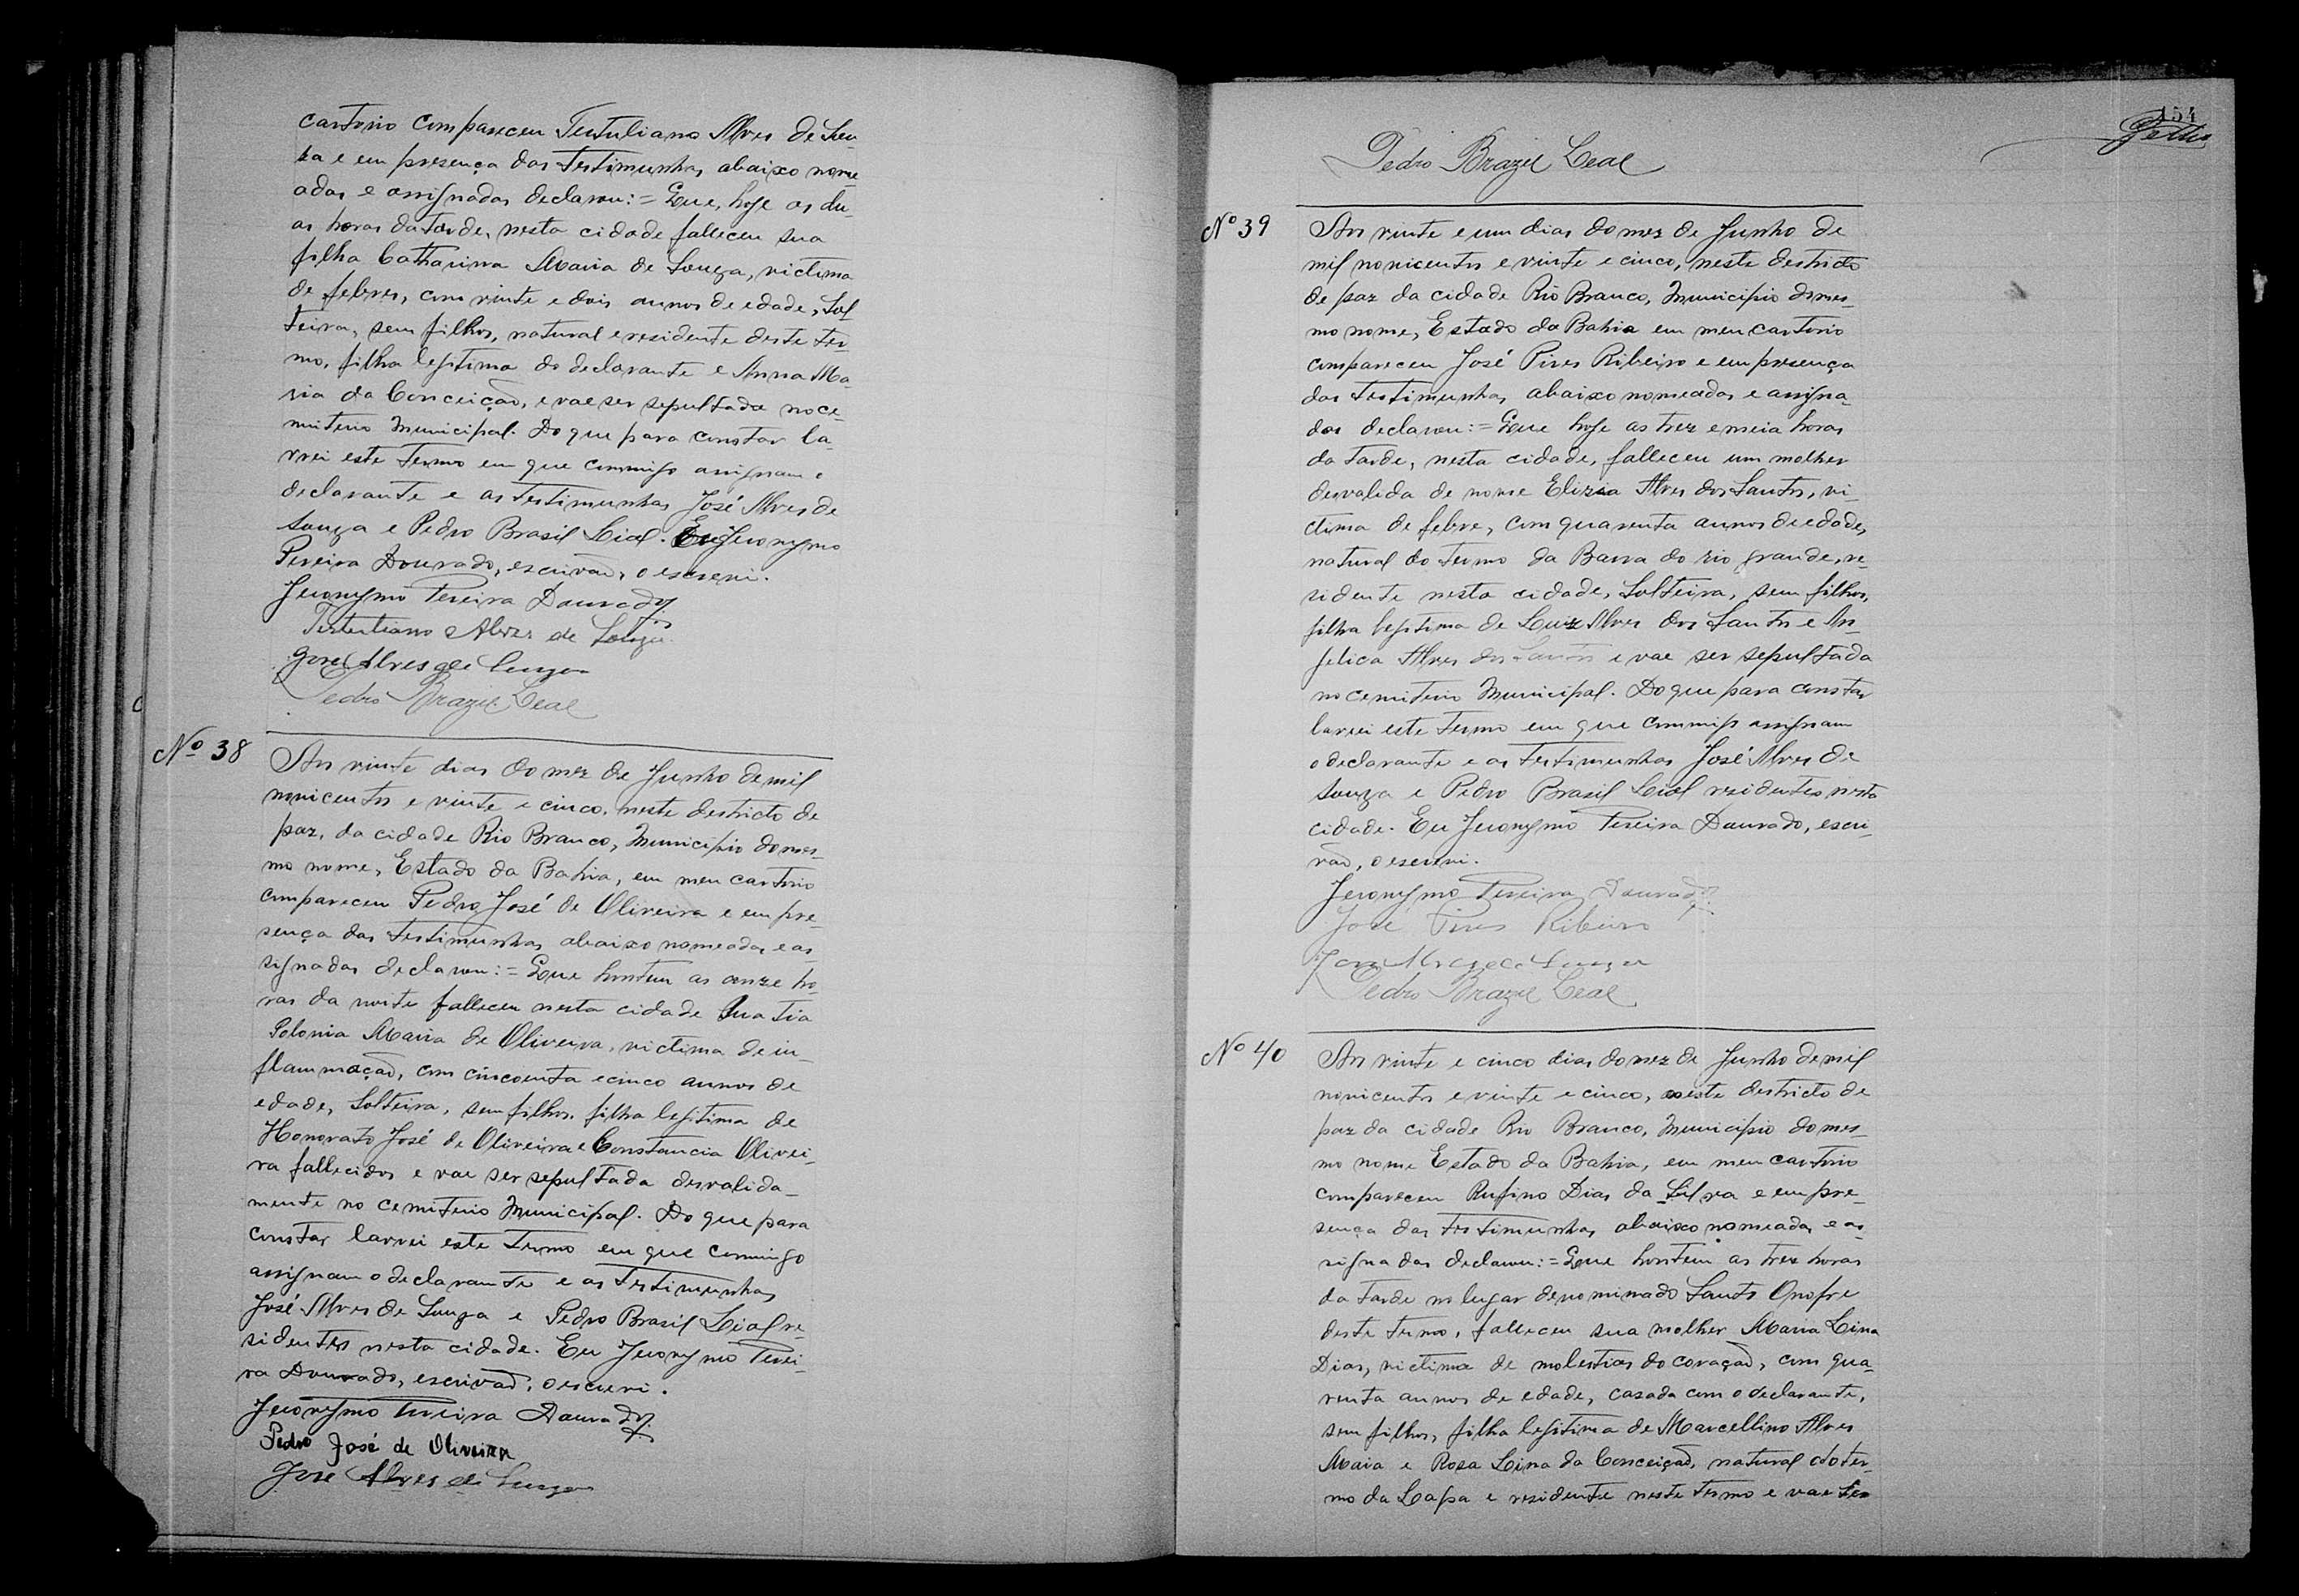 cartorio compareceu Tertuliano Alves de Sou-
za e em presença das testimunhas abaixo nome-
adas e assignadas declarou:= Que, hoje as du-
as horas da tarde, nesta cidade falleceu sua
filha Catharina Maria de Souza, victima
de febres, com vinte e dois annos de edade, Sol-
teira, sem filhos, natural e residente deste ter-
mo, filha legitima do declarante e Anna Ma-
ria da Conceição, e vae ser sepultada no ce-
miterio Municipal. Do que para constar la-
vrei este termo em que commigo assignam o
declarante e as testimunhas José Alves de
Souza e Pedro Brasil Lial. Eu Jeronymo
Pereira Dourado, escrivão, o escrevi.
Jeronymo Pereira Dourado
Tertuliano Alves de Souza
José Alves de Souza
Pedro Brazil Leal
Nº 38
Aos vinte dias do mez de Junho de mil
novicentos e vinte e cinco, neste destricto de
paz, da cidade Rio Branco, Municipio do mes-
mo nome, Estado da Bahia, em meu cartorio
compareceu Pedro José de Oliveira e em pre-
sença das testimunhas abaixo nomeadas e as-
signadas declarou:= Que hontem as onze ho-
ras da noite falleceu nesta cidade Sua tia
Polonia Maria de Oliveira, victima de in-
flammação, com cincoenta e cinco annos de
edade, Solteira, sem filhos, filha legitima de
Honorato José de Oliveira e Constancia Olivei-
ra fallecidos e vae ser sepultada desvalida-
mente no cemiterio Municipal. Do que para
constar lavrei este termo em que commigo
assignam o declarante e as testimunhas
José Alves de Souza e Pedro Brasil Lial re-
sidentes nesta cidade. Eu Jeronymo Perei-
ra Dourado, escrivão, o escrevi.
Jeronymo Pereira Dourado
Pedro José de Oliveira
José Alves de Souza
154
Pedro Brazil Leal
Nº 39
Aos vinte e um dias do mez de Junho de
mil novicentos e vinte e cinco, neste destricto
de paz da cidade Rio Branco, Municipio do mes-
mo nome, Estado da Bahia em meu cartorio
compareceu José Pires Ribeiro e em presença
das testimunhas abaixo nomeadas e assigna-
das declarou:= Que hoje as trez e meia horas
da tarde, nesta cidade, falleceu um molher
desvalida de nome Eliza Alves dos Santos, vi-
ctima de febre, com quarenta annos de edade,
natural do termo da Barra do rio grande, re-
sidente nesta cidade, Solteira, sem filhos,
filha legitima de Luiz Alves dos Santos e An-
gelica Alves dos Santos e vae ser sepultada
no cemiterio Municipal. Do que para constar
lavrei este termo em que commigo assignam
o declarante e as testimunhas José Alves de
Souza e Pedro Brasil Lial residentes nesta
cidade. Eu Jeronymo Pereira Dourado, escri-
vão, o escrevi.
Jeronymo Pereira Dourado
José Pires Ribeiro
José Alves de Souza
Pedro Brazil Leal
Nº 40
Aos vinte e cinco dias do mez de Junho de mil
novicentos e vinte e cinco, neste destricto de
paz da cidade Rio Branco, Municipio do mes-
mo nome Estado da Bahia, em meu cartorio
compareceu Rufino Dias da Silva e em pre-
sença das testimunhas abaixo nomeadas e as-
signadas declarou:= Que hontem as trez horas
da tarde no lugar denominado Santo Onofre
deste termo, falleceu sua molher Maria Lina
Dias, victima de molestias do coração, com qua-
renta annos de edade, casada com o declarante,
sem filhos, filha legitima de Marcellino Alves
Maia e Rosa Lina da Conceição, natural do ter-
mo da Lapa e residente neste termo e vae ser